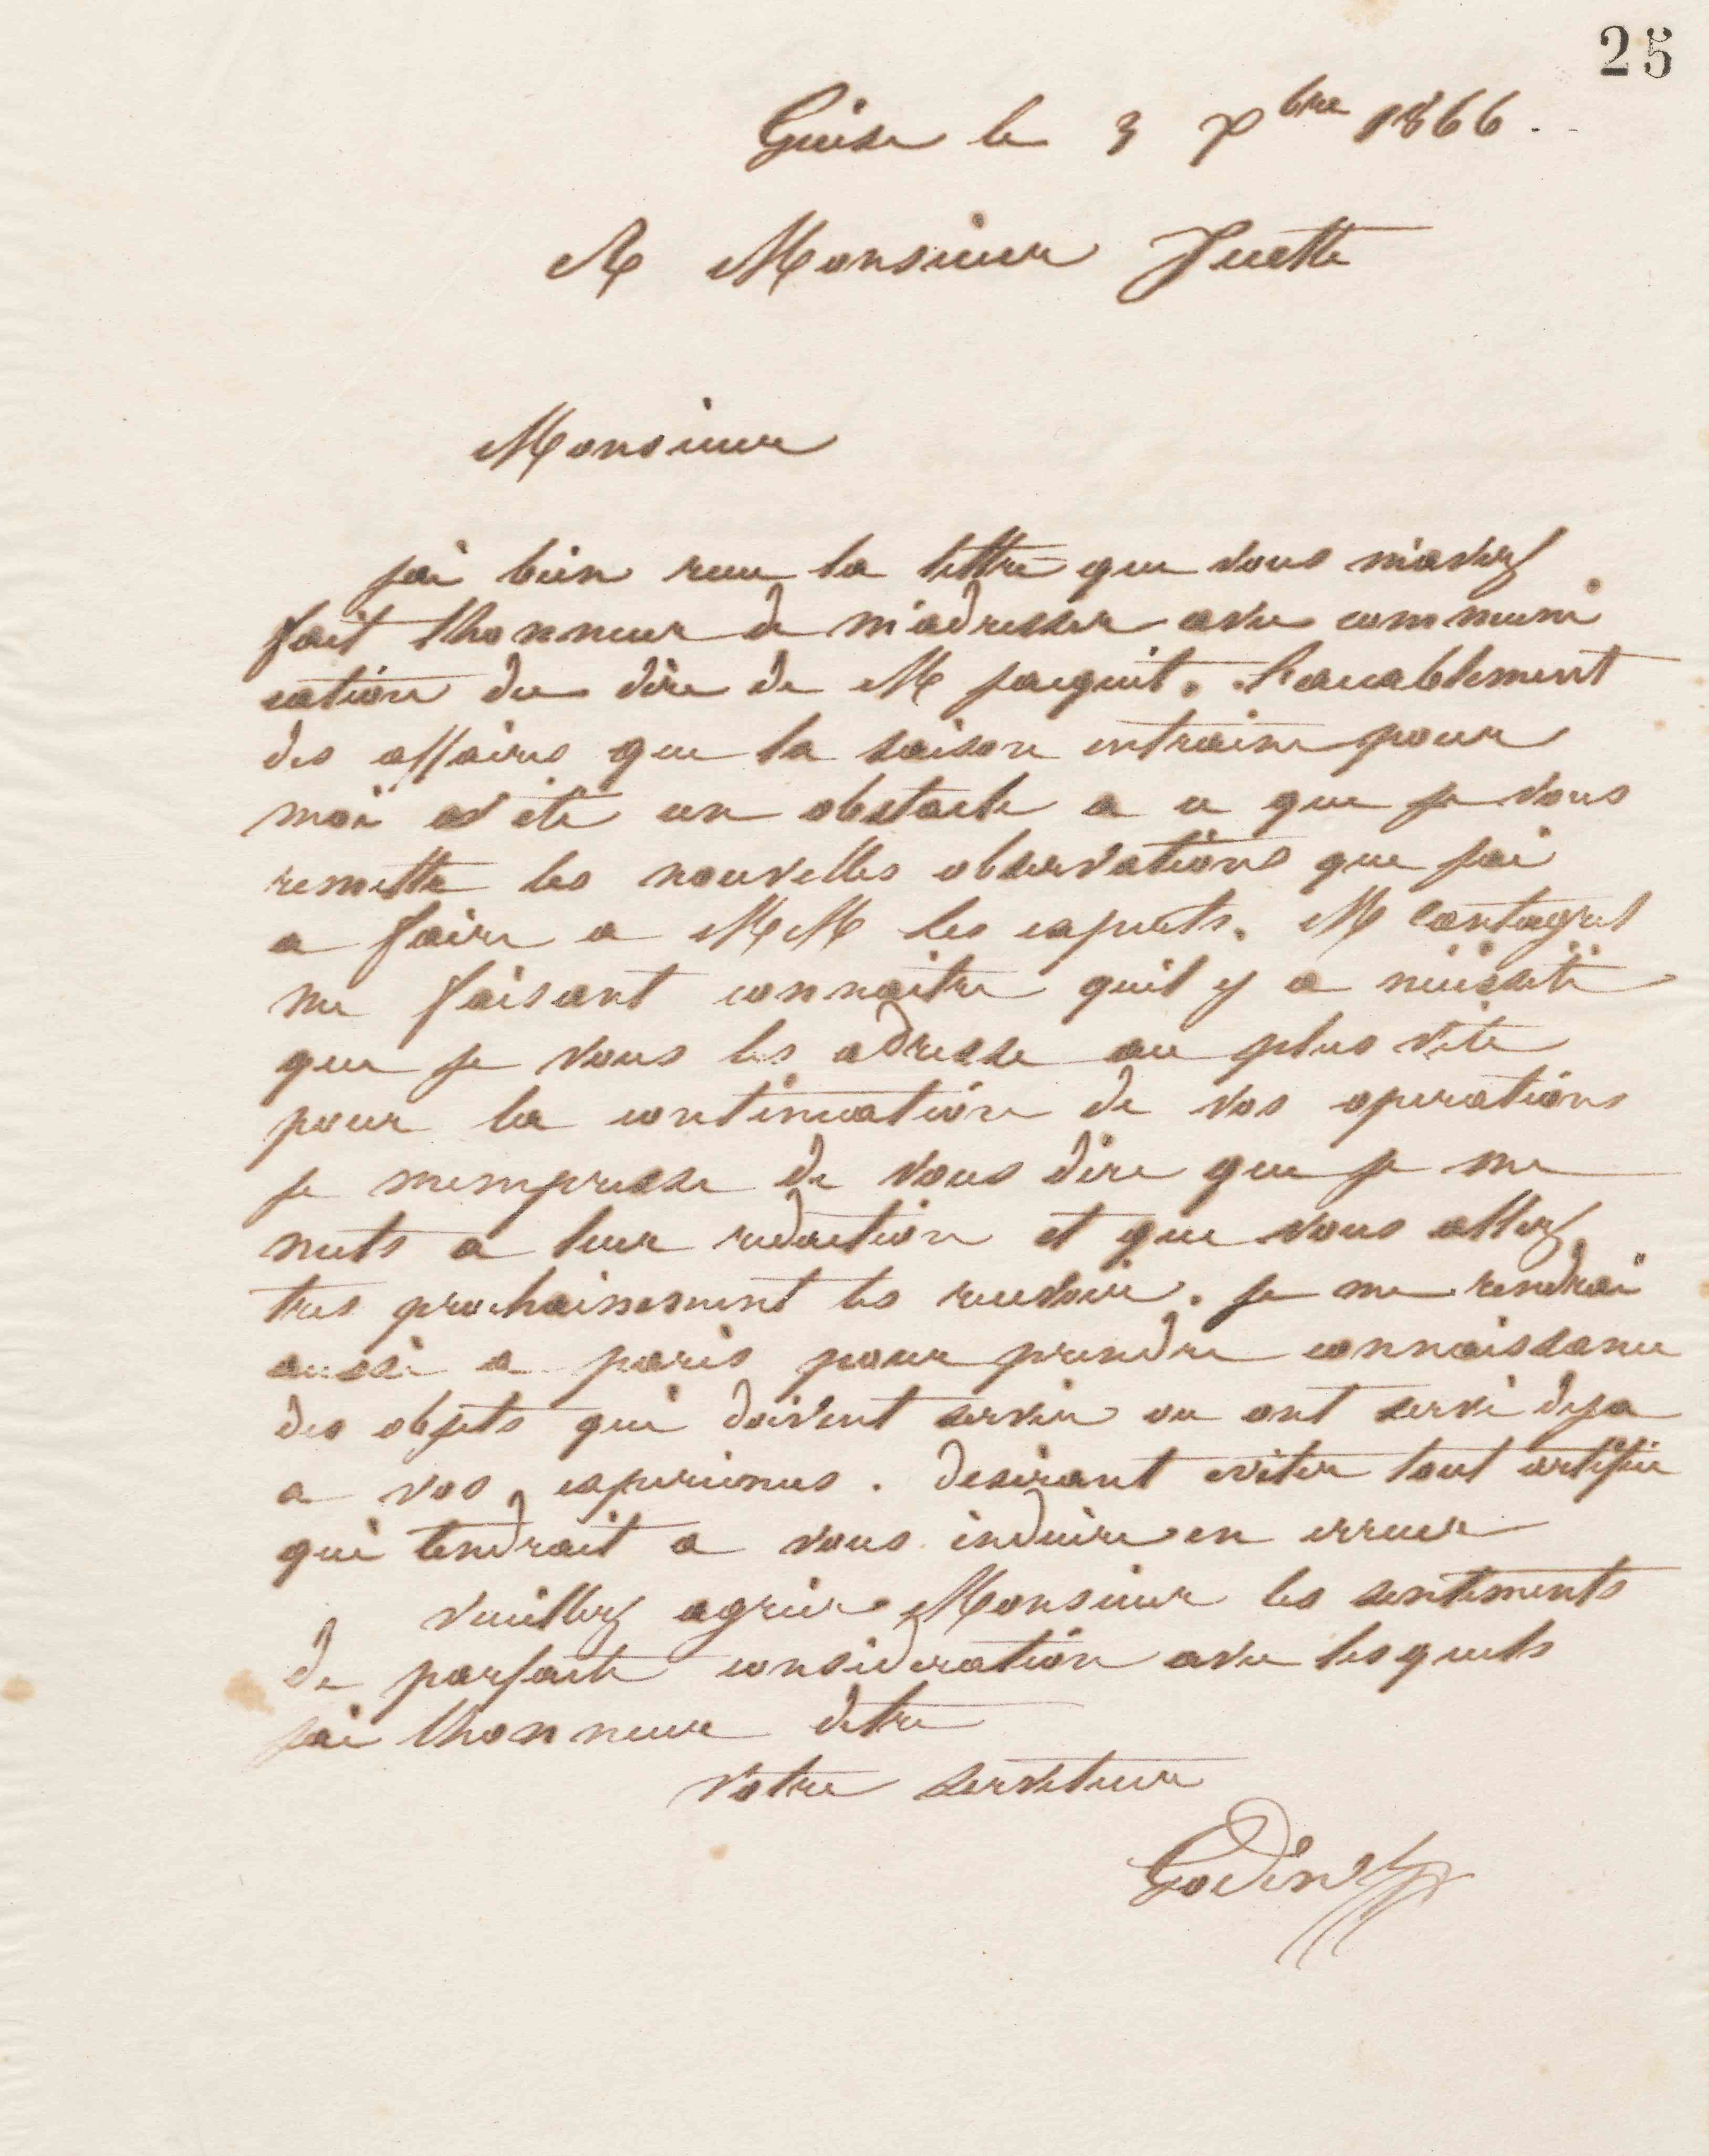 25
Guise le 3 Xbre 1866.
A Monsieur Juette
Monsieur
jai bien recu la lettre que vous m'avez
fait lhonneur de m'adresser avec communi
cation du dire de M jacquet. l'accablement
des affaires que la saison entraine pour
moi a été un obstacle a ce que je vous
remette les nouvelles observations que jai
a faire a MM les experts. M Cantagrel
me faisant connaitre quil y a nécissité
que je vous les adresse au plus vite
pour la continuation de vos operations
je mempresse de vous dire que je me
mets a leur redaction et que vous allez
tres prochainement les recevoir. je me rendrai
aussi a paris pour prendre connaissance
des objets qui doivent servir ou ont servi deja
a vos experiences. desirant eviter tout artifice
qui tendrait a vous induire en erreur
veuillez agréer Monsieur les sentiments
de parfaite consideration avec lesquels
jai lhonneur detre
votre serviteur
Godin